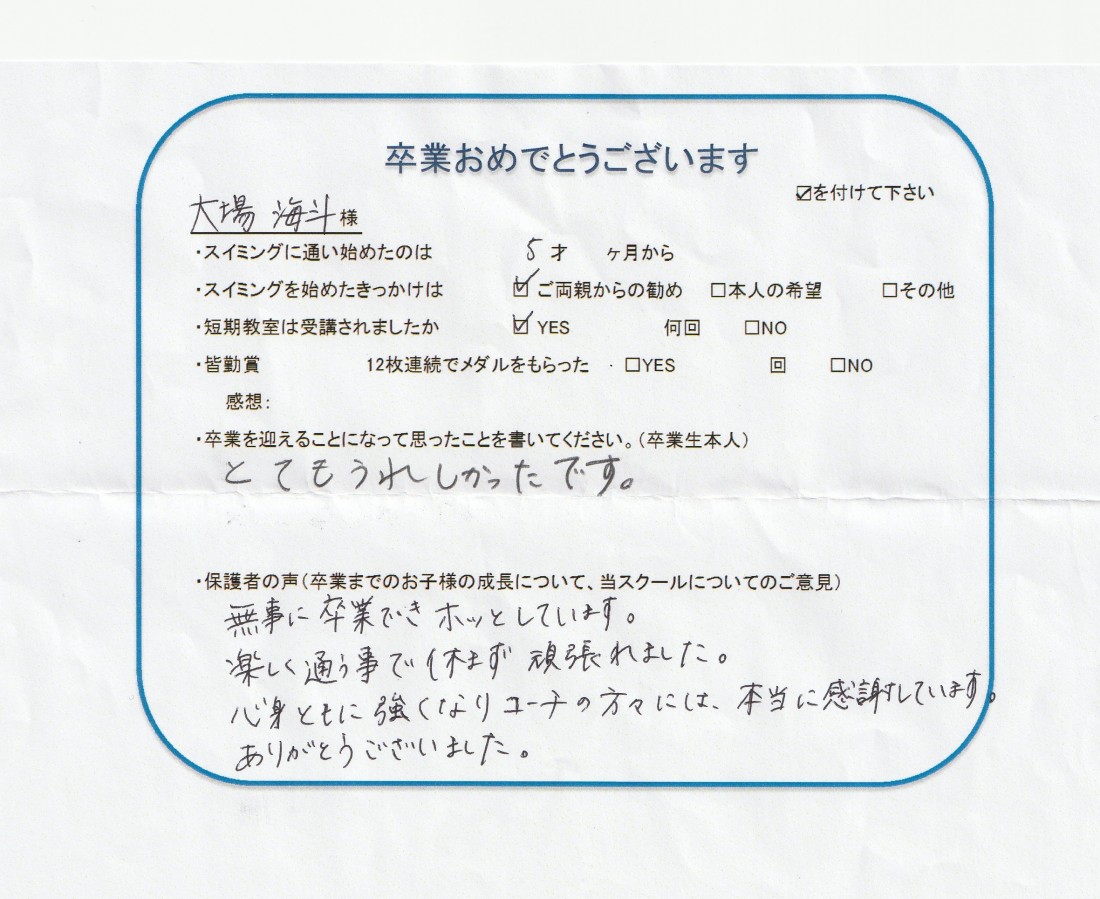 卒業おめでとうございます
☑を付けて下さい
大場 海斗様
・スイミングに通い始めたのは 5才 ヶ月から
・スイミングを始めたきっかけは ☑ご両親からの勧め □本人の希望 □その他
・短期教室は受講されましたか ☑YES 何回 □NO
・皆勤賞 12枚連続でメダルをもらった ・□YES 回 □NO
感想:
・卒業を迎えることになって思ったことを書いてください。(卒業生本人)
とてもうれしかったです。
・保護者の声(卒業までのお子様の成長について、当スクールについてのご意見)
無事に卒業でき ホッとしています。
楽しく通う事で休まず 頑張れました。
心身ともに強くなりコーチの方々には、本当に感謝しています。
ありがとうございました。